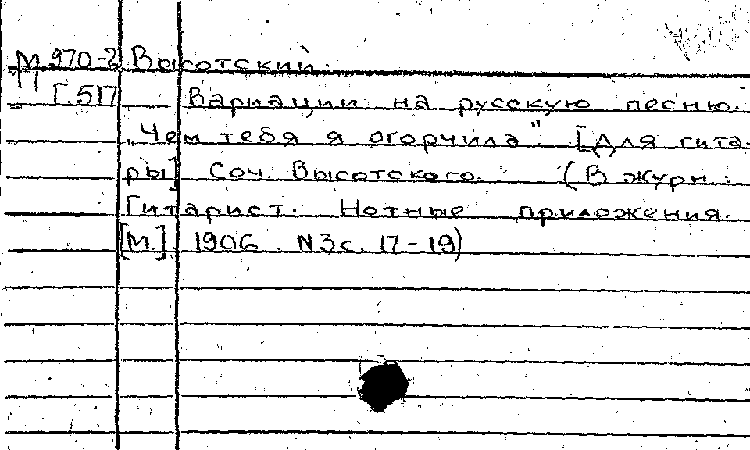 М 970-2 Высотский.
11
Г.517 Вариации на русскую песню
„Чем тебя я огорчила" [Для гита-
ры] Соч. Высотского. (В журн.:
Гитарист. Нотные приложения.
[М.] 1906 N3 с. 17-19)